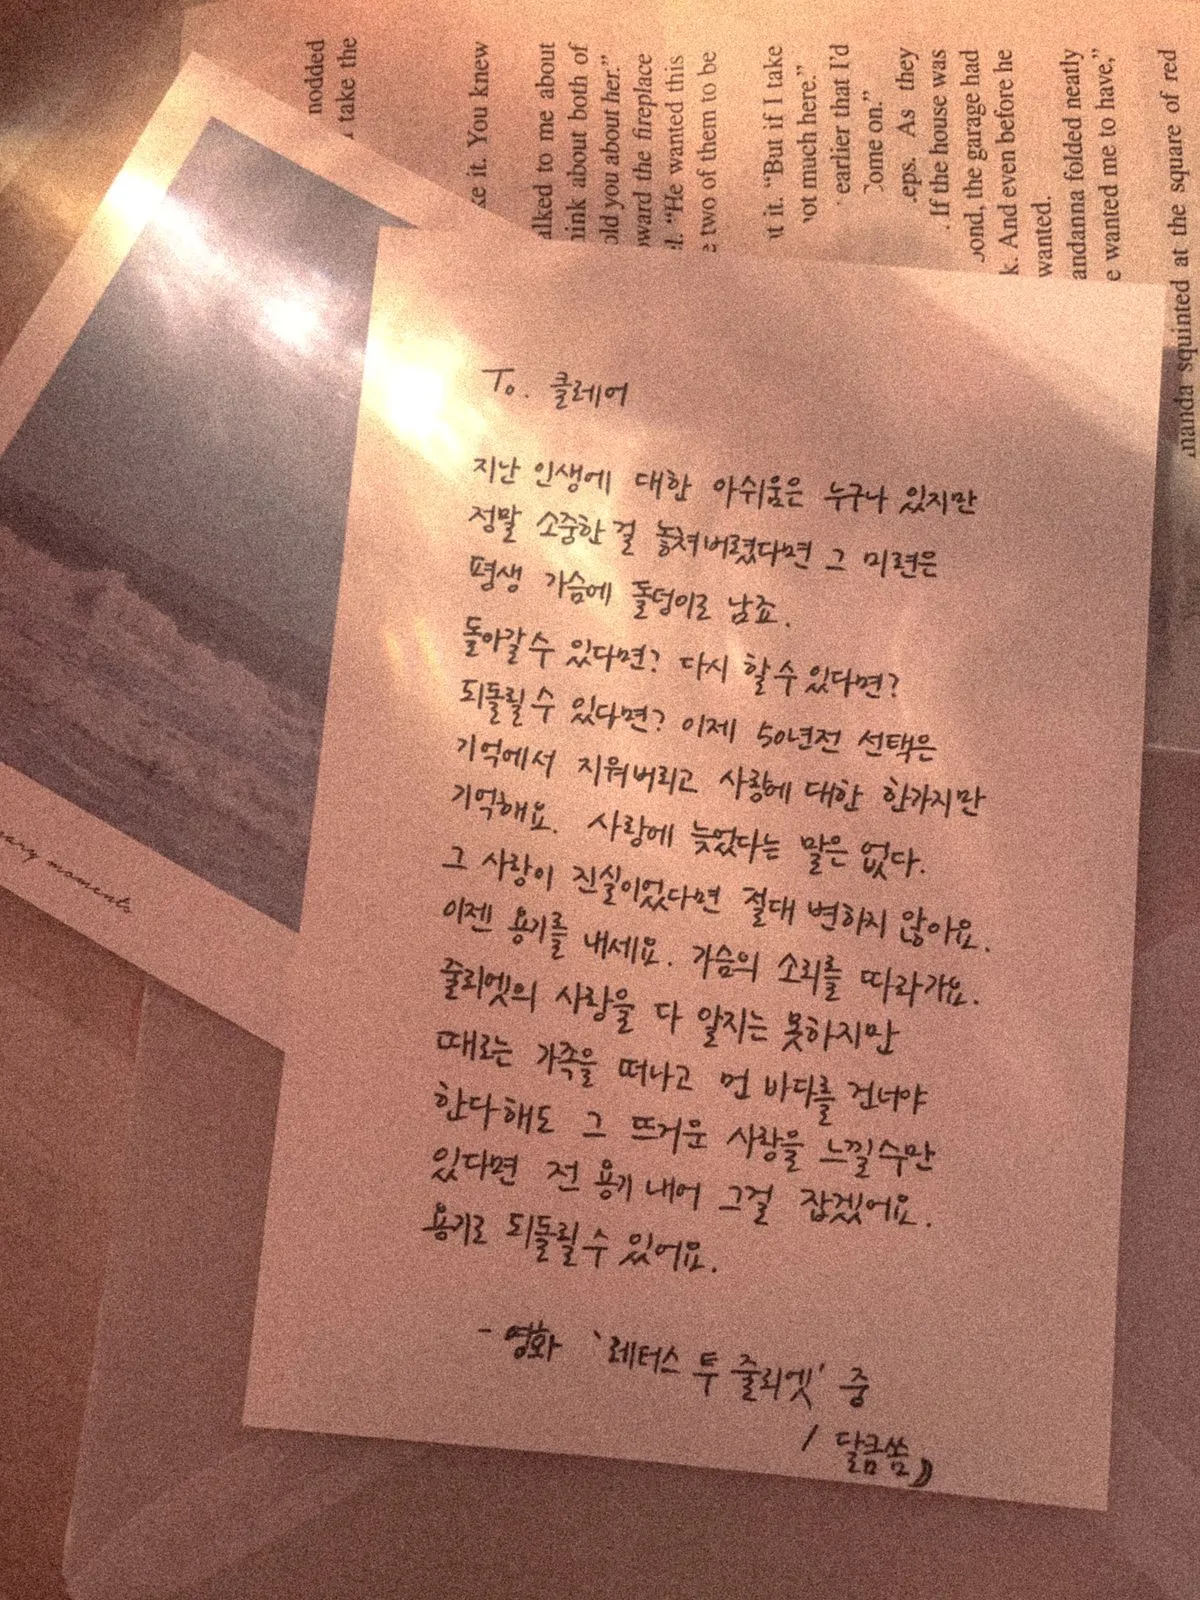 nodded
take the
ke it. You knew
alked to me about
hink about both of
old you about her.”
oward the fireplace
d. “He wanted this
e two of them to be
it it. “But if I take
ot much here.”
earlier that I’d
Come on.”
eps. As they
. If the house was
ond, the garage had
k. And even before he
wanted.
andanna folded neatly
e wanted me to have,”
manda squinted at the square of red
moments
To. 클레어
지난 인생에 대한 아쉬움은 누구나 있지만
정말 소중한 걸 놓쳐버렸다면 그 미련은
평생 가슴에 돌덩이로 남죠.
돌아갈 수 있다면? 다시 할 수 있다면?
되돌릴 수 있다면? 이제 50년전 선택은
기억에서 지워버리고 사랑에 대한 한가지만
기억해요. 사랑에 늦었다는 말은 없다.
그 사랑이 진실이었다면 절대 변하지 않아요.
이젠 용기를 내세요. 가슴의 소리를 따라가요.
줄리엣의 사랑을 다 알지는 못하지만
때로는 가족을 떠나고 먼 바다를 건너야
한다해도 그 뜨거운 사랑을 느낄수만
있다면 전 용기 내어 그걸 잡겠어요.
용기로 되돌릴 수 있어요.
- 영화 '레터스 투 줄리엣' 중
/ 달큼쏨))